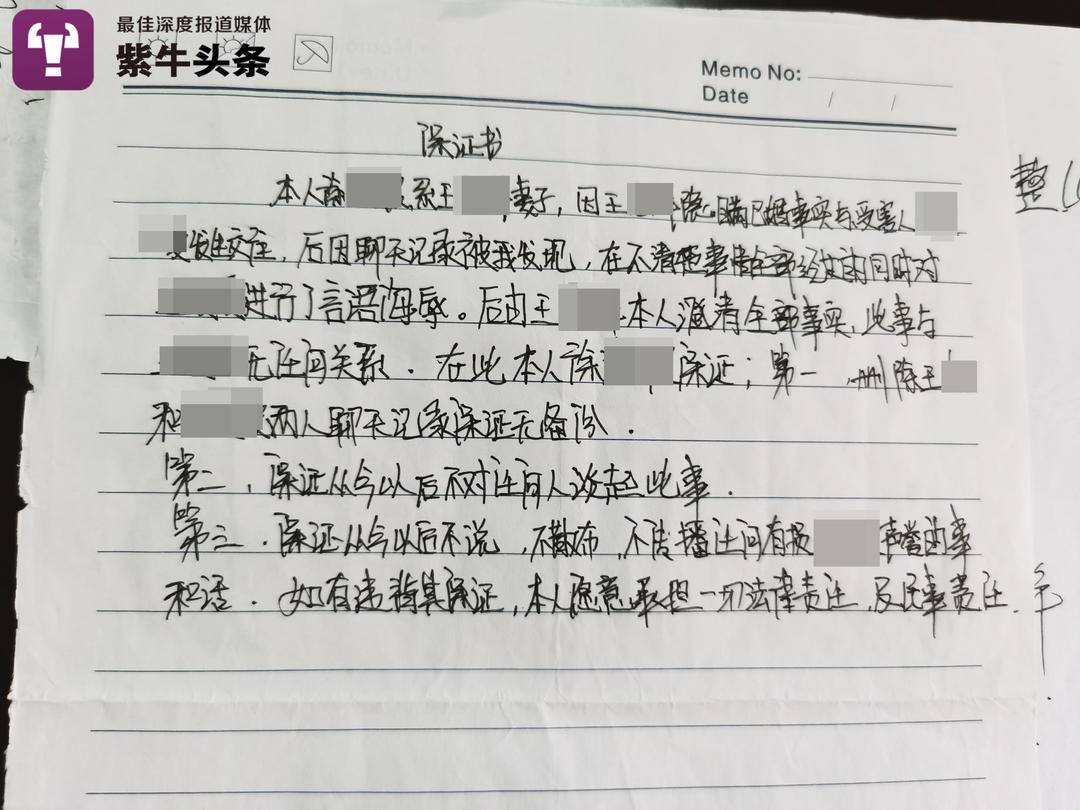 最佳深度报道媒体
紫牛头条
Memo No:
Date / /
保证书
本人徐 系王 妻子，因王 隐瞒已婚事实与受害人
发生交往，后因聊天记录被我发现，在不清楚事情全部经过的同时对
进行了言语侮辱。后由王 本人澄清全部事实，此事与
无任何关系．在此本人徐 保证；第一 删除王
和 两人聊天记录保证无备份．
第二，保证从今以后不对任何人谈起此事．
第三．保证从今以后不说，不散布，不传播任何有损 声誉的事
和话．如有违背其保证，本人愿意承担一切法律责任，及民事责任．
整